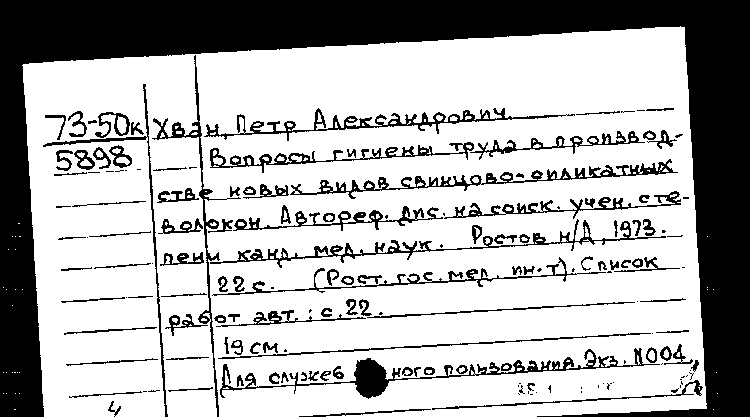 73-50к Хван, Петр Александрович.
5898 Вопросы гигиены труда в производ-
стве новых видов свинцово-силикатных
волокон. Автореф. дис. на соиск. учен. сте-
пени канд. мед. наук. Ростов н/Д, 1973.
22 с. (Рост. гос. мед. ин-т). Список
работ авт.: с. 22.
19 см.
Для служебного пользования. Экз. №004
4